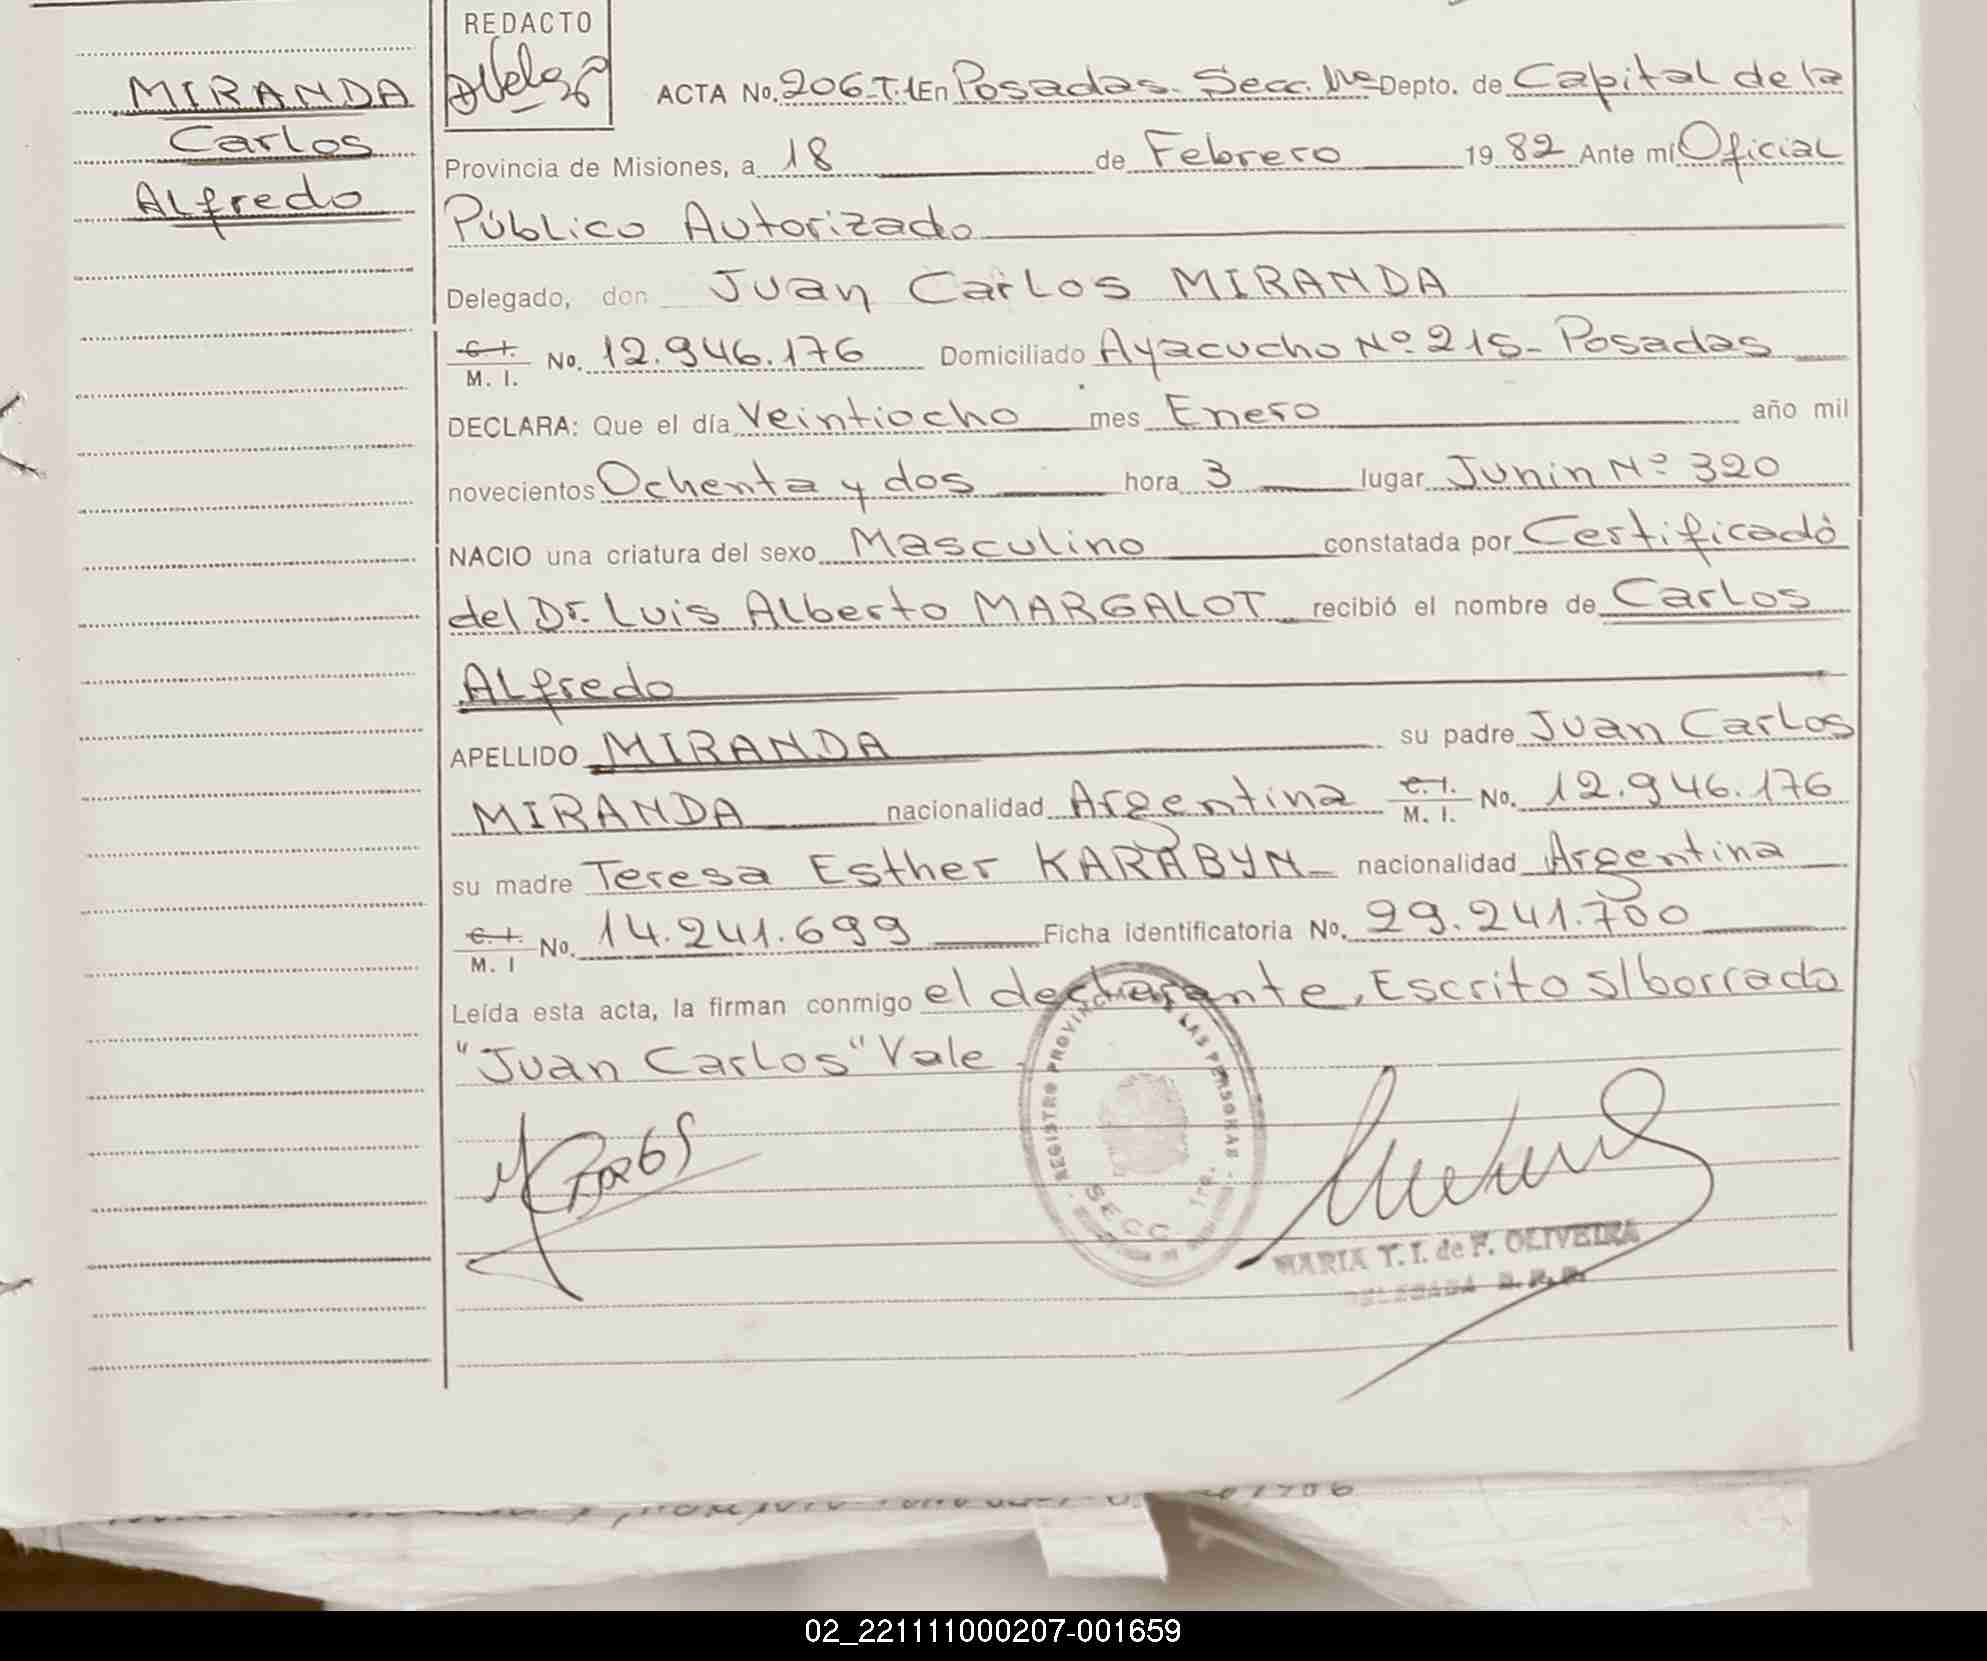 REDACTO
MIRANDA
Carlos
Alfredo
ACTA No. 206-T.I En Posadas. Secc. 1ra Depto. de Capital de la
Provincia de Misiones, a 18 de Febrero 1982 Ante mí Oficial
Público Autorizado
Delegado, don Juan Carlos MIRANDA
C.I. M. I. No. 12.946.176 Domiciliado Ayacucho Nº 215- Posadas
DECLARA: Que el día Veintiocho mes Enero año mil
novecientos Ochenta y dos hora 3 lugar Junin Nº 320
NACIO una criatura del sexo Masculino constatada por Certificado
del Dr. Luis Alberto MARGALOT recibió el nombre de Carlos
Alfredo
APELLIDO MIRANDA su padre Juan Carlos
MIRANDA nacionalidad Argentina C.I. M. I. No. 12.946.176
su madre Teresa Esther KARABYN nacionalidad Argentina
C.I. M. I No. 14.241.699 Ficha identificatoria No. 29.241.700
Leída esta acta, la firman conmigo el declarante, Escrito s/borrado
"Juan Carlos" Vale
REGISTRO PROVINCIAL LAS PERSONAS
SECC. 1ra.
MARIA T. I. de F. OLIVEIRA
DELEGADA R. P. P.
02_221111000207-001659